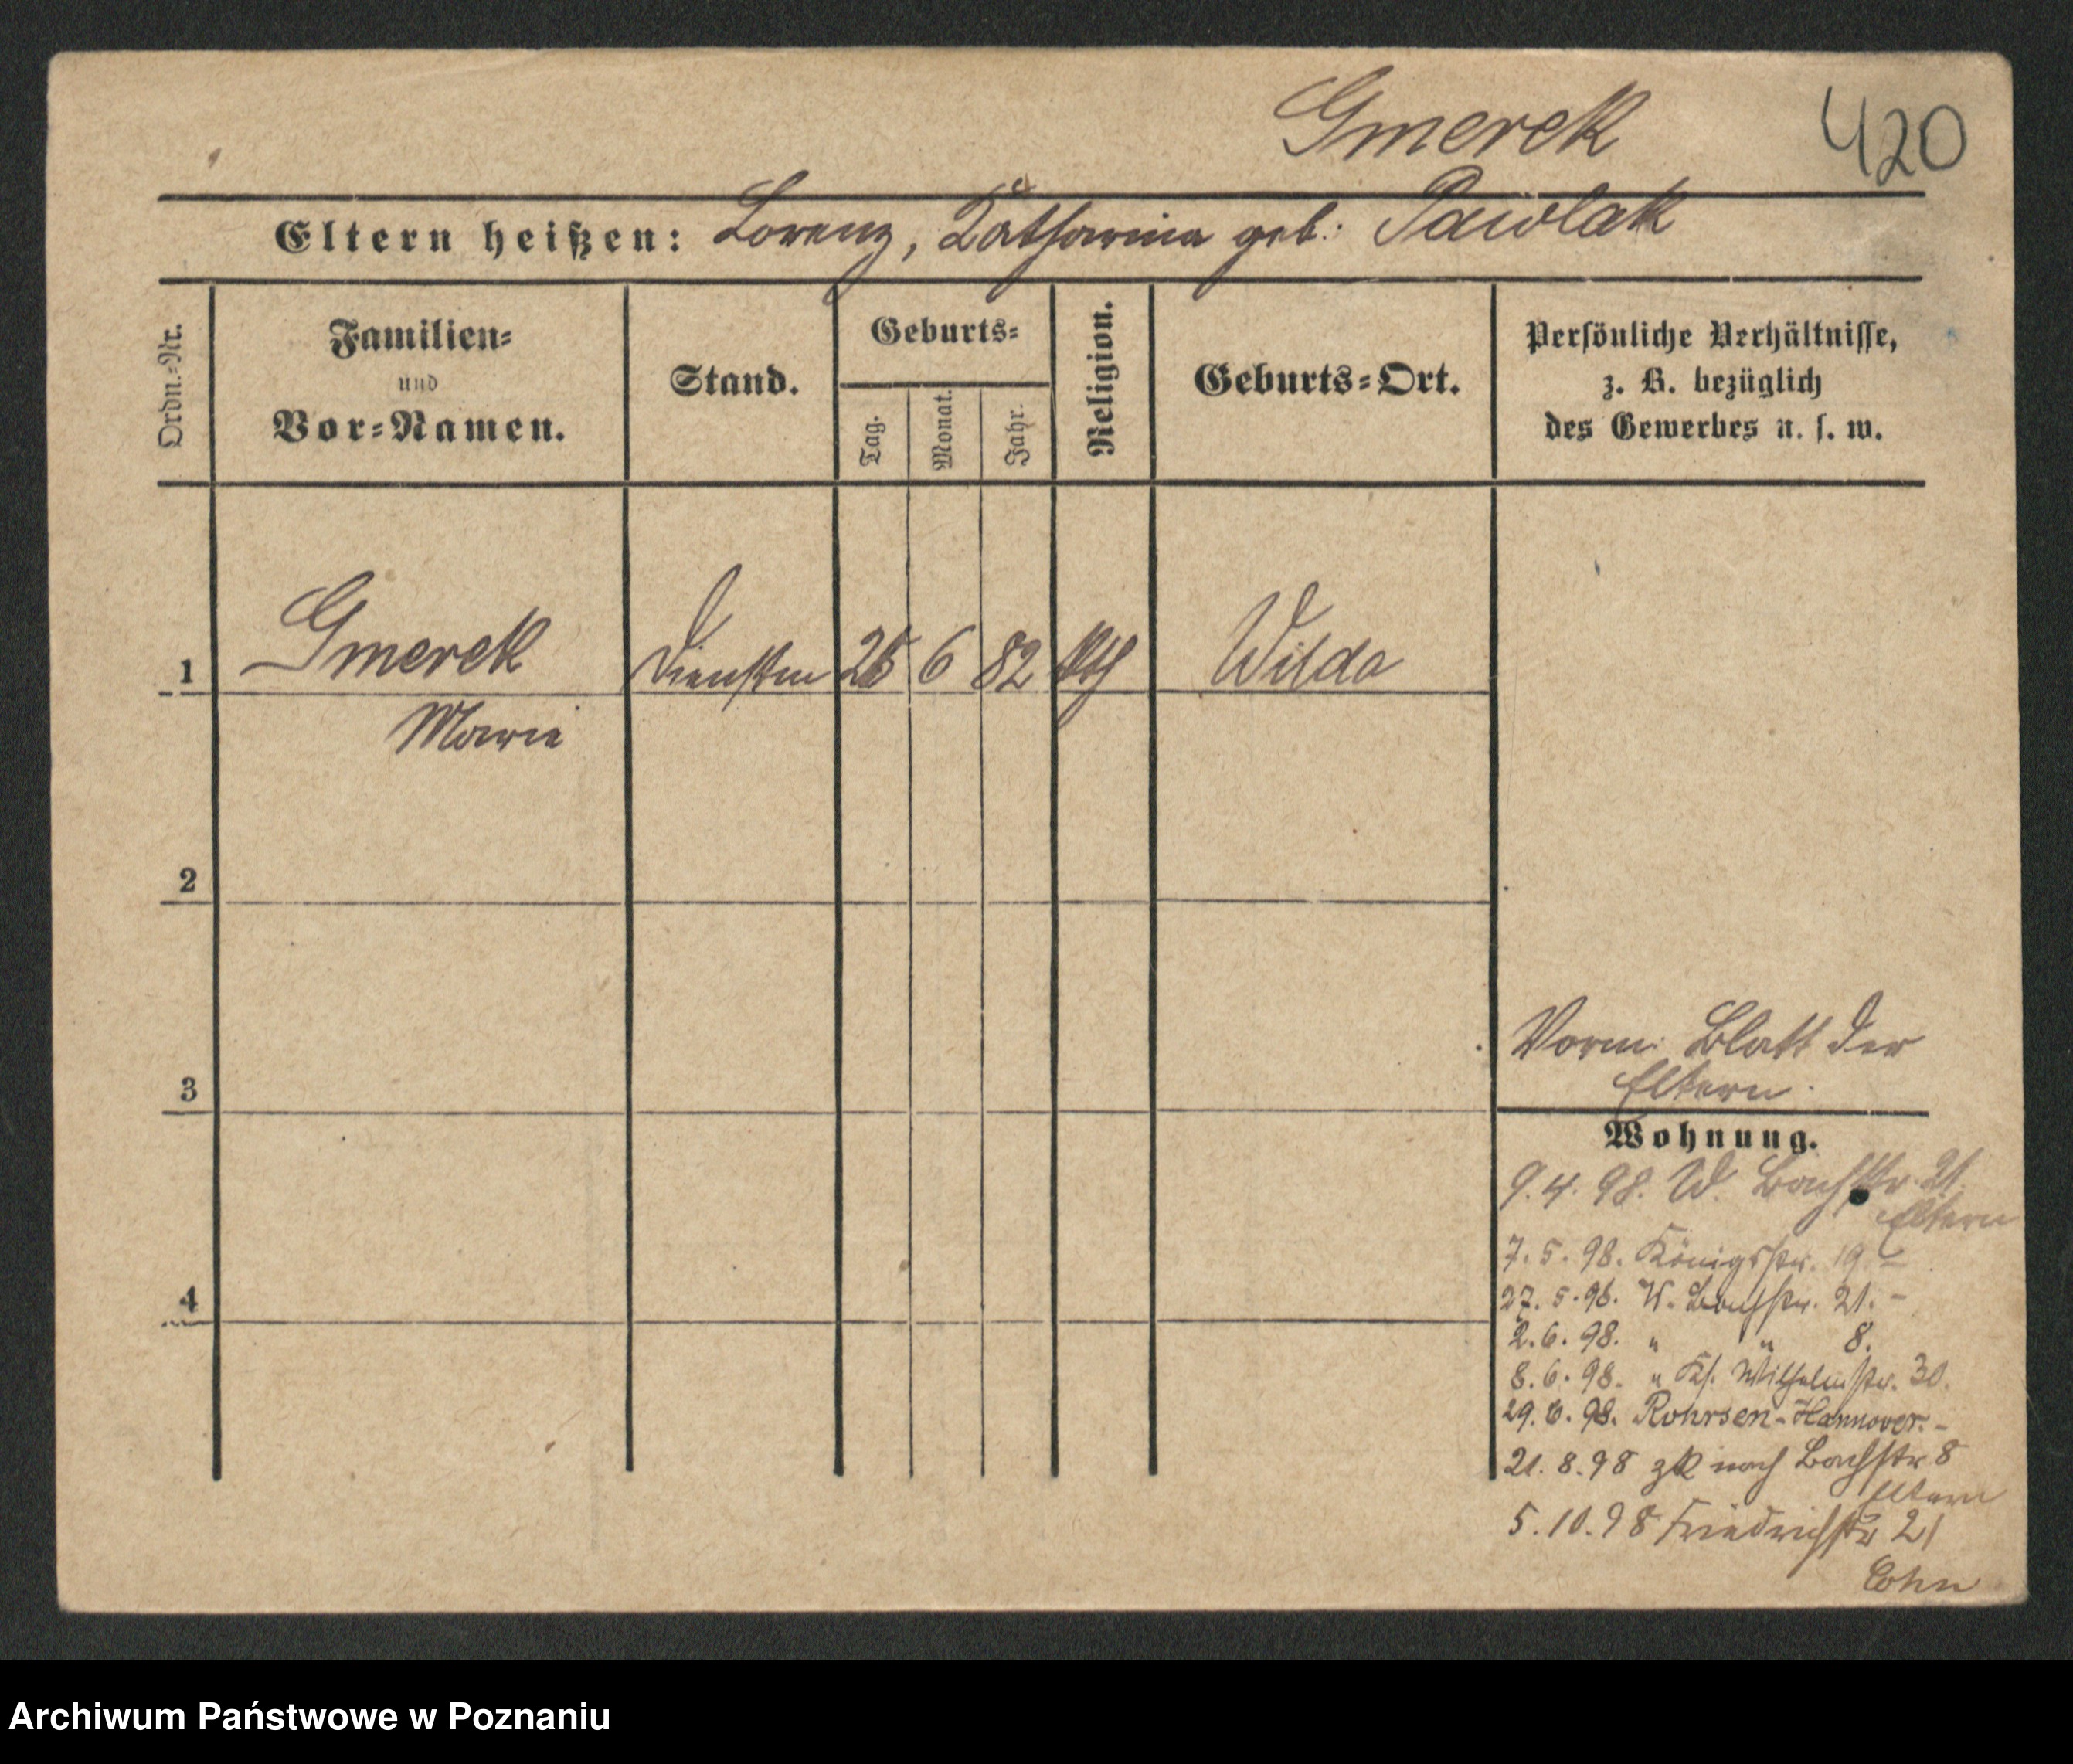 Gmerek
420
Eltern heißen: Lorenz, Katharina geb: Pawlak
Ordn.=Nr.
Familien=
und
Vor=Namen.
Stand.
Geburts=
Tag.
Monat.
Jahr.
Religion.
Geburts=Ort.
Persönliche Verhältnisse,
z. B. bezüglich
des Gewerbes u. s. w.
1 Gmerek 6 82 kth Wilda
Marie
2
3
4
Vorm. Blatt der
Eltern.
Wohnung.
9. 4. 98. W. Bachstr. 21.
Eltern
7. 5. 98. Königsstr. 19. –
27. 5. 98. W. Bachstr. 21. –
2. 6. 98. " " 8.
8. 6. 98. " Kl. Wilhelmstr. 30.
29. 6. 98. Rohrsen-Hannover. –
21. 8. 98 zk nach Bachstr 8
Eltern
5. 10. 98 Friedrichstr 21
Cohn
Archiwum Państwowe w Poznaniu